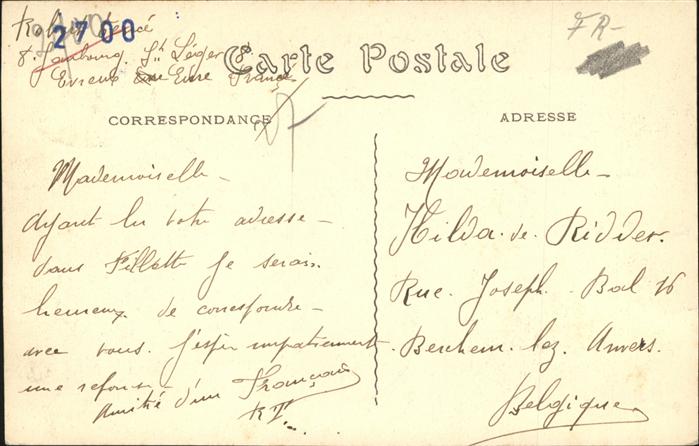 Robert
2700
Faubourg St Léger
Evreux Eure France
FR-
Carte Postale
CORRESPONDANCE
ADRESSE
Mademoiselle -
Ayant lu votre adresse -
dans Fillette je serais
heureux de correspondre -
avec vous. J'espère impatiemment
une reponse -
Amitié d'un Français
Mademoiselle -
Hilda. de. Ridder.
Rue. Joseph. Bal 16
Berchem. lez. Anvers.
Belgique